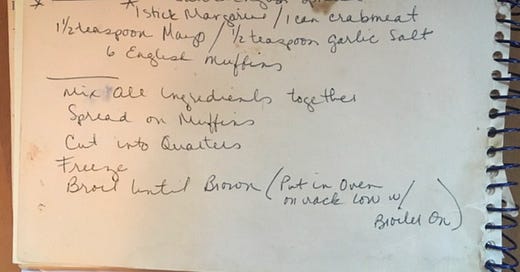 * 1 stick Margarine / 1 can crabmeat
1½ teaspoon Mayo / ½ teaspoon garlic Salt
6 English Muffins
Mix all ingredients together
Spread on Muffins
Cut into Quarters
Freeze
Broil until Brown (Put in Oven
on rack low w/
Broiler On)